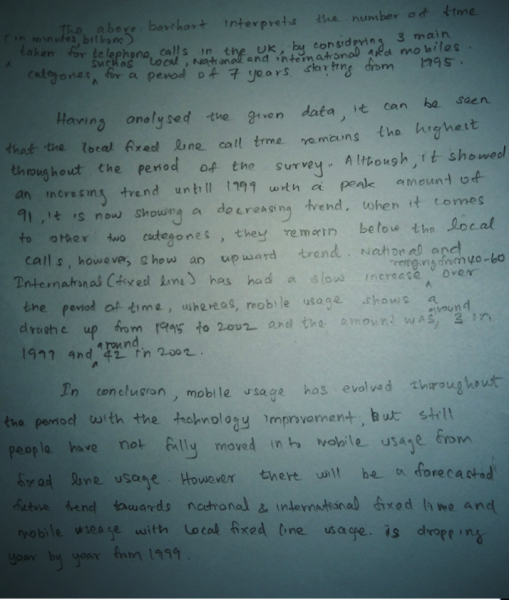 The above barchart interprets the number of time
(in minutes, billions)
taken for telephone calls in the UK, by considering 3 main
such as local, national and international and mobiles.
categories, for a period of 7 years starting from 1995.
Having analysed the given data, it can be seen
that the local fixed line call time remains the highest
throughout the period of the survey. Although, it showed
an incresing trend untill 1999 with a peak amount of
91, it is now showing a decreasing trend. When it comes
to other two categories, they remain below the local
calls, however, show an upward trend. National and
ranging from 40-60
International (fixed line) has had a slow increase over
the period of time, whereas, mobile usage shows a
drastic up from 1995 to 2002 and the amount was, around 3 in
1997 and around 42 in 2002.
In conclusion, mobile usage has evolved throughout
the period with the technology improvement, but still
people have not fully moved in to mobile usage from
fixed line usage. However there will be a forecasted
future trend towards national & international fixed line and
mobile useage with local fixed line usage. is dropping
year by year from 1999.